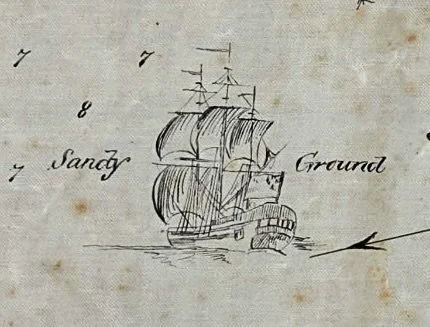 7 7
8
7 Sandy Ground